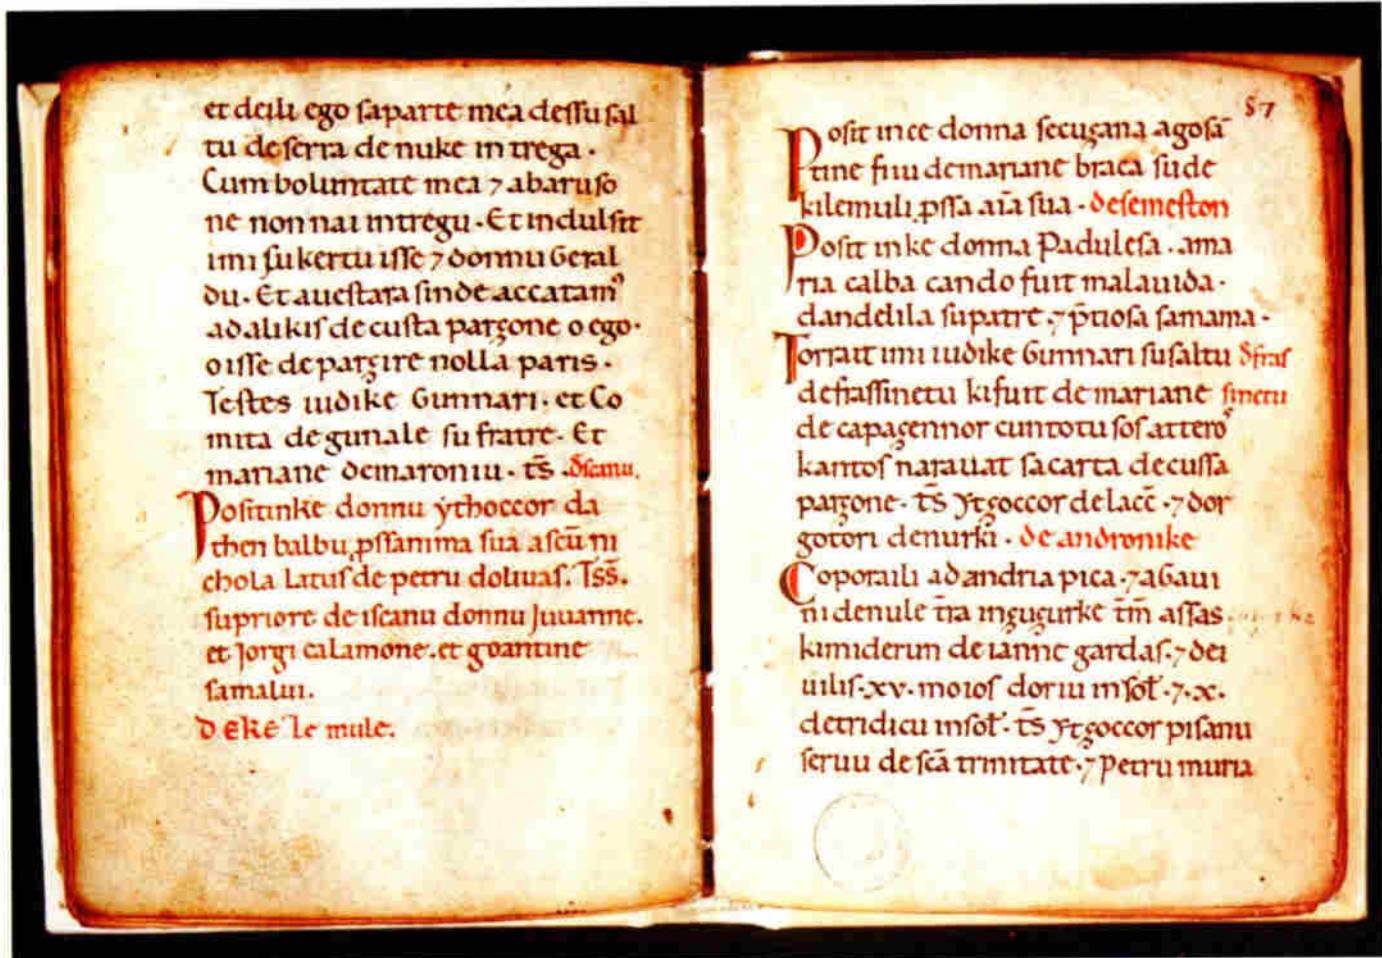 et deili ego saparte mea dessu sal
tu de serra de nuke in trega ·
Cum boluntate mea ⁊ abaruso
ne non nai intregu · Et indulsit
imi su kertu isse ⁊ donnu Geral
du · Et auestara sinde accatamꝰ
ad alikis de custa parzone o ego ·
o isse de parzire nolla paris ·
Testes iudike Gunnari · et Co
mita de gunale su fratre · Et
mariane de maroniu · t̄s · đ scanu.
Positinke donnu ẏthoccor da
then balbu, ꝑssanima sua ascū ni
chola Latus de petru doliuas. Tss̄.
supriore de iscanu donnu Juuanne.
et Jorgi calamone. et goantine
samalui.
DEKE Le mule.
87
Posit ince donna secuzana agosā
tine fiiu demariane braca su de
kilemuli ꝑssa aīa sua · desemeston
Posit inke donna Padulesa · ama
ria calba cando fuit malauida ·
dandelila supatre · ⁊ p̄tiosa samama ·
Torrait imi iudike Gunnari susaltu đ fras
defrassinetu kifuit de mariane sinetu
de capazennor cuntotu sos atteroꝰ
kantos narauat sacarta decussa
parzone · t̄s ẏtzoccor de lacc̄ · ⁊ dor
gotori denurki · de andronike
Coporaili ad andria pica · ⁊ aGaui
ni denule t̄ra inzuzurke t̄m̄ assas
kimiderun de ianne gardas · ⁊ dei
uilis · xv · moios doriu insoł · ⁊ · x ·
detridicu insoł · t̄s ẏtzoccor pisanu
seruu de sc̄a trinitate · ⁊ Petru muria